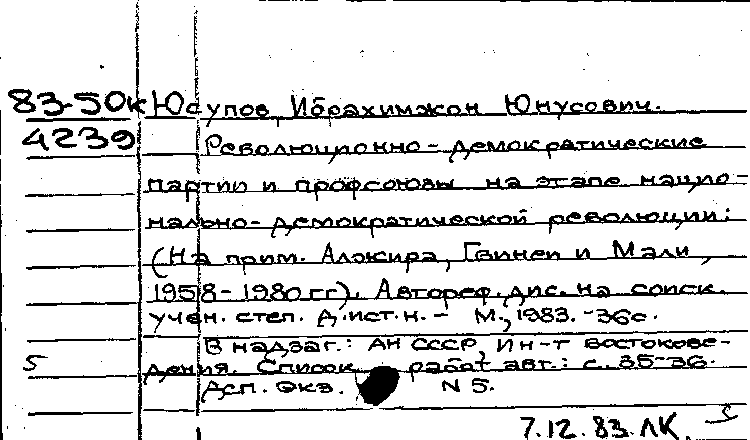 83-50к Юсупов, Ибрахимжон Юнусович.
4239 Революционно-демократические
партии и профсоюзы на этапе нацио-
нально-демократической революции:
(На прим. Алжира, Гвинеи и Мали,
1958-1980 гг). Автореф. дис. на соиск.
учен. степ. д.ист.н. - М., 1983. -36с.
В надзаг.: АН СССР, Ин-т востокове-
5 дения. Список работ авт.: с. 35-36.
Дсп. Экз. N 5.
7.12.83. ЛК.